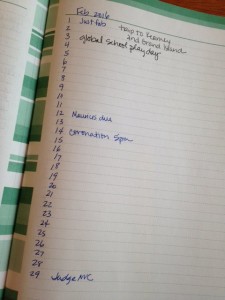 Feb 2016
1 Just fab
2 trip to Kearney
3 and Grand Island
4 global school play day
5
6
7
8
9
10
11
12 due
13
14 Coronation
15
16
17
18
19
20
21
22
23
24
25
26
27
28
29 Judge NVC